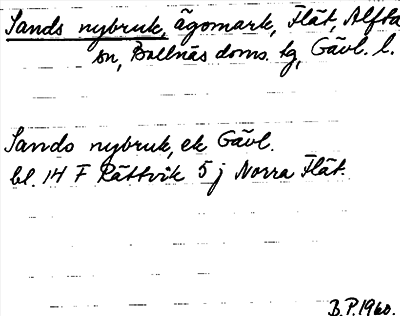 Sands nybruk, ägomark, Flät, Alfta
sn, Bollnäs doms. tg, Gävl. l.
Sands nybruk, ek Gävl.
bl. 14 F Rättvik 5 j Norra Flät.
B.P. 1960.